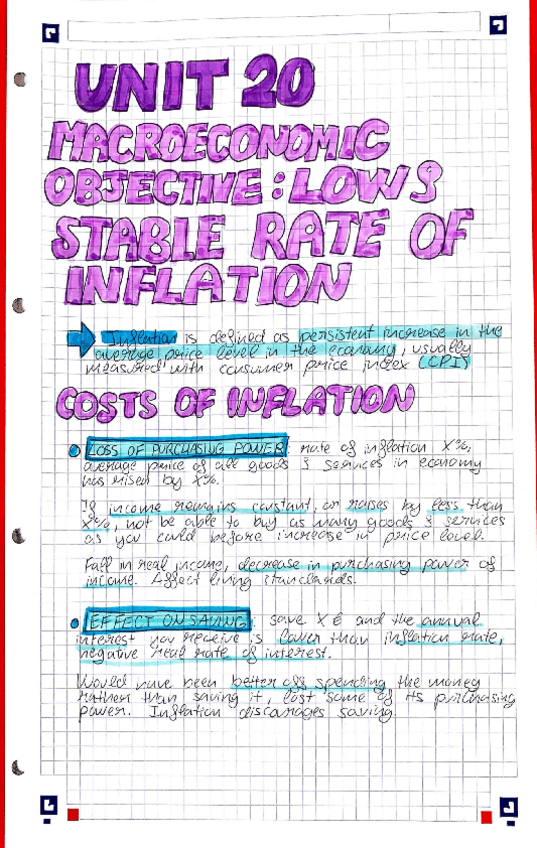 UNIT 20
MACROECONOMIC
OBJECTIVE: LOW &
STABLE RATE OF
INFLATION
Inflation is defined as persistent increase in the
average price level in the economy, usually
measured with consumer price index (CPI)
COSTS OF INFLATION
LOSS OF PURCHASING POWER: rate of inflation X%,
average price of all goods & services in economy
has rised by X%.
If income remains constant, or raises by less than
X%, not be able to buy as many goods & services
as you could before increase in price level.
Fall in real income, decrease in purchasing power of
income. Affect living standards.
EFFECT ON SAVING: save X € and the annual
interest you receive is lower than inflation rate,
negative real rate of interest.
Would have been better off spending the money
rather than saving it, lost some of its purchasing
power. Inflation discorages saving.